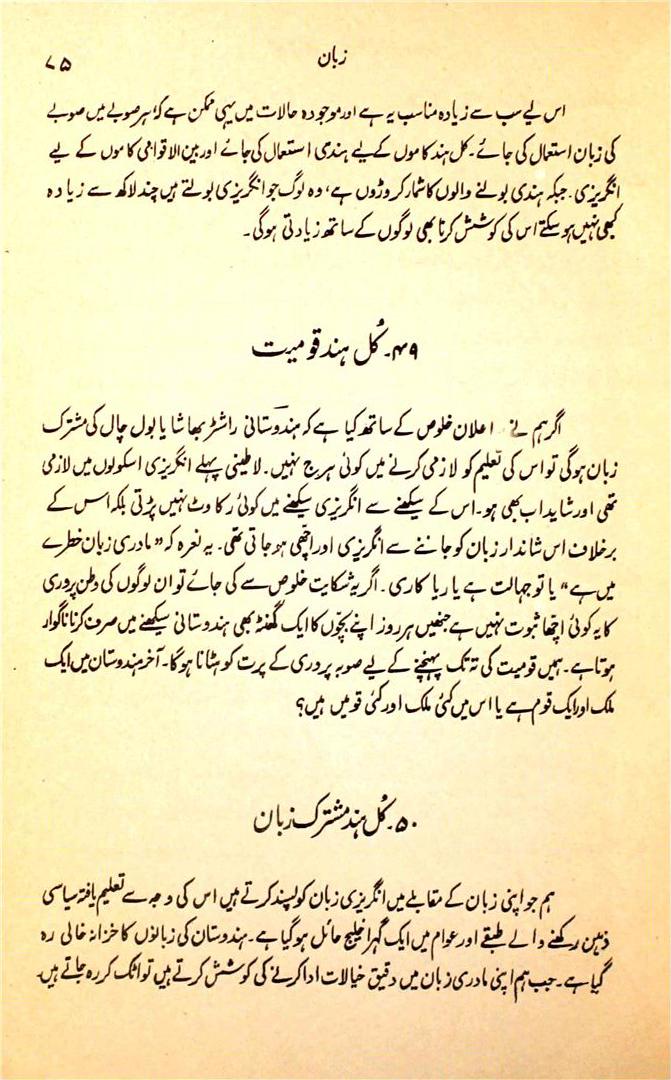 زبان
۷۵
اس لیے سب سے زیادہ مناسب یہ ہے اور موجودہ حالات میں یہی ممکن ہے کہ ہر صوبے میں صوبے
کی زبان استعمال کی جائے۔ کل ہند کاموں کے لیے ہندی استعمال کی جائے اور بین الاقوامی کاموں کے لیے
انگریزی۔ جبکہ ہندی بولنے والوں کا شمار کروڑوں ہے، وہ لوگ جو انگریزی بولتے ہیں چند لاکھ سے زیادہ
کبھی نہیں ہو سکتے اس کی کوشش کرنا بھی لوگوں کے ساتھ زیادتی ہوگی۔
۴۹۔ کُل ہند قومیت
اگر ہم نے اعلان خلوص کے ساتھ کیا ہے کہ ہندوستانی راشٹر بھاشا یا بول چال کی مشترک
زبان ہوگی تو اس کی تعلیم کو لازمی کرنے میں کوئی ہرج نہیں۔ لاطینی پہلے انگریزی اسکولوں میں لازمی
تھی اور شاید اب بھی ہو۔ اس کے سیکھنے سے انگریزی سیکھنے میں کوئی رکاوٹ نہیں پڑتی بلکہ اس کے
برخلاف اس شاندار زبان کو جاننے سے انگریزی اور اچھی ہو جاتی تھی۔ یہ نعرہ کہ "مادری زبان خطرے
میں ہے" یا تو جہالت ہے یا ریاکاری۔ اگر یہ شکایت خلوص سے کی جائے تو ان لوگوں کی وطن پروری
کا یہ کوئی اچھا ثبوت نہیں ہے جنھیں ہر روز اپنے بچّوں کا ایک گھنٹہ بھی ہندوستانی سیکھنے میں صرف کرنا ناگوار
ہوتا ہے۔ ہمیں قومیت کی تہ تک پہنچنے کے لیے صوبہ پروری کے پرت کو ہٹانا ہوگا۔ آخر ہندوستان میں ایک
ملک اور ایک قوم ہے یا اس میں کئی ملک اور کئی قومیں ہیں؟
۵۰۔ کُل ہند مشترک زبان
ہم جو اپنی زبان کے مقابلے میں انگریزی زبان کو پسند کرتے ہیں اس کی وجہ سے تعلیم یافتہ سیاسی
ذہن رکھنے والے طبقے اور عوام میں ایک گہرا خلیج حائل ہو گیا ہے۔ ہندوستان کی زبانوں کا خزانہ خالی رہ
گیا ہے۔ جب ہم اپنی مادری زبان میں دقیق خیالات ادا کرنے کی کوشش کرتے ہیں تو اٹک کر رہ جاتے ہیں۔